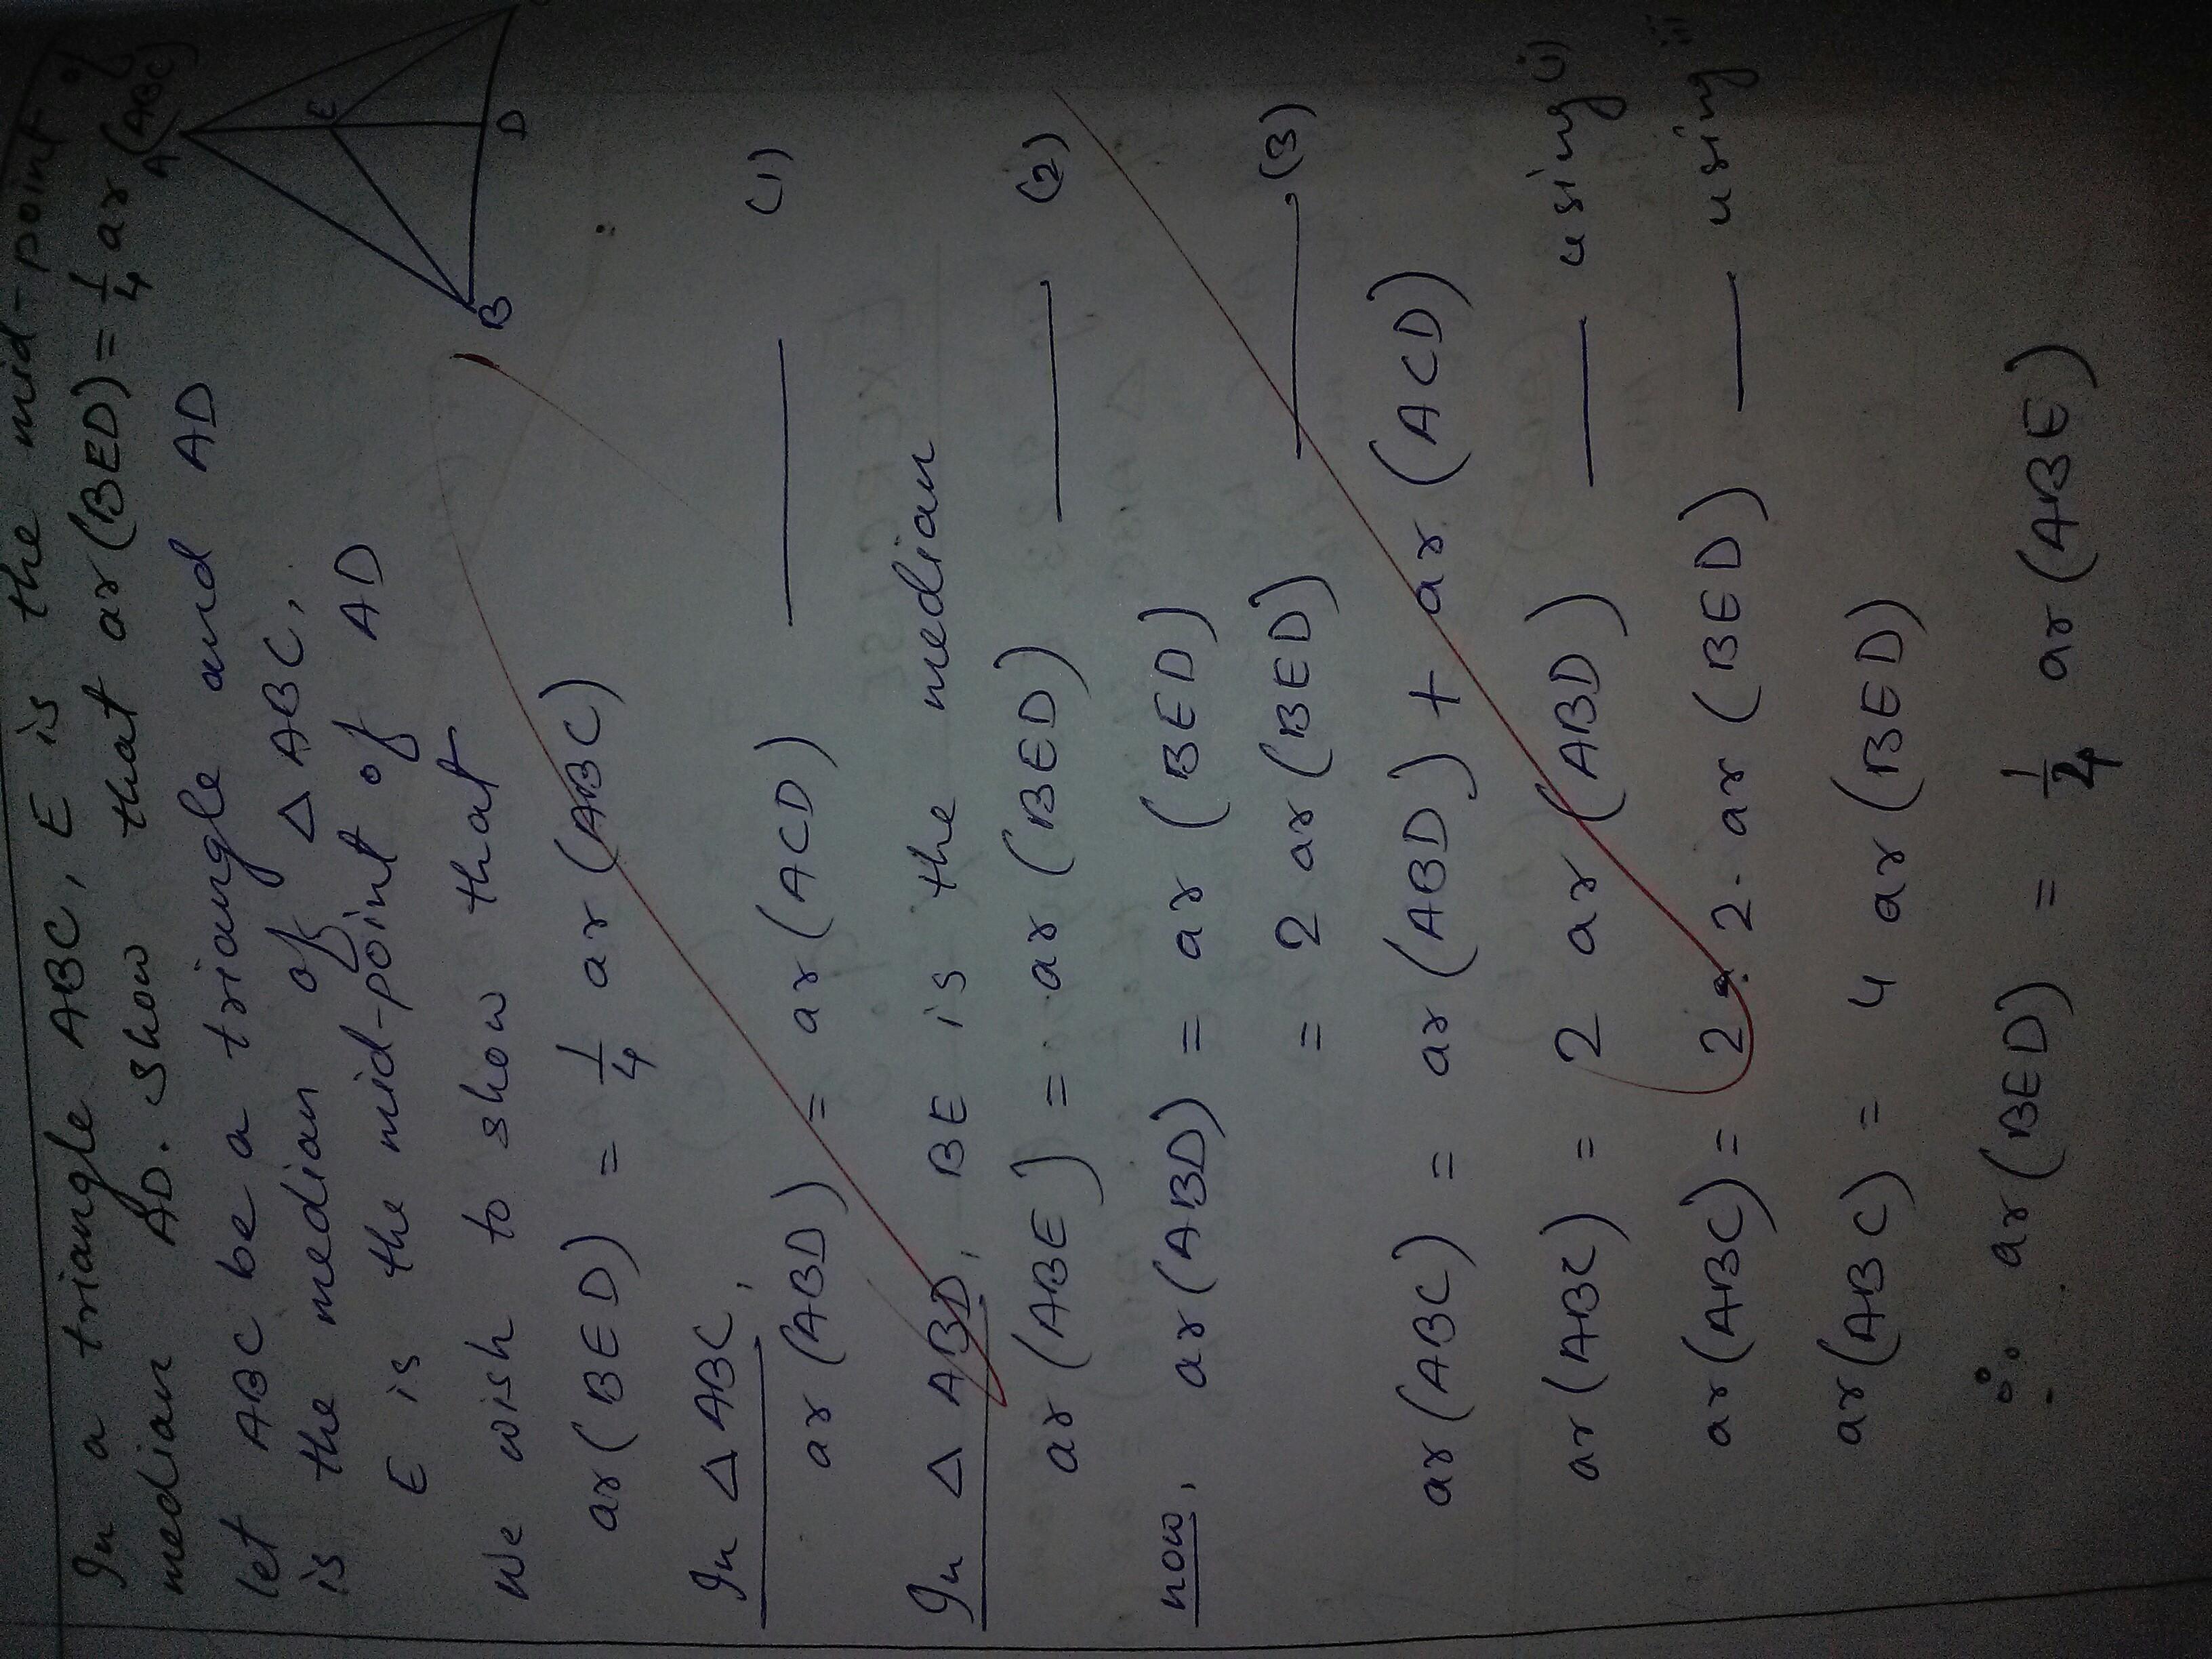 In a triangle ABC, E is the mid-point of
median AD. show that ar(BED) = 1/4 ar(ABC)
let ABC be a triangle and AD
is the median of △ ABC,
E is the mid-point of AD
A
E
B
D
we wish to show that
ar(BED) = 1/4 ar(ABC)
In △ ABC,
ar(ABD) = ar(ACD) —— (1)
In △ ABD, BE is the median
ar(ABE) = ar(BED) —— (2)
now, ar(ABD) = ar(BED)
= 2 ar(BED) —— (3)
ar(ABC) = ar(ABD) + ar(ACD)
ar(ABC) = 2 ar(ABD) —— using (i)
ar(ABC) = 2. 2. ar(BED) —— using iii
ar(ABC) = 4 ar(BED)
∴ ar(BED) = 1/4 ar(ABE)